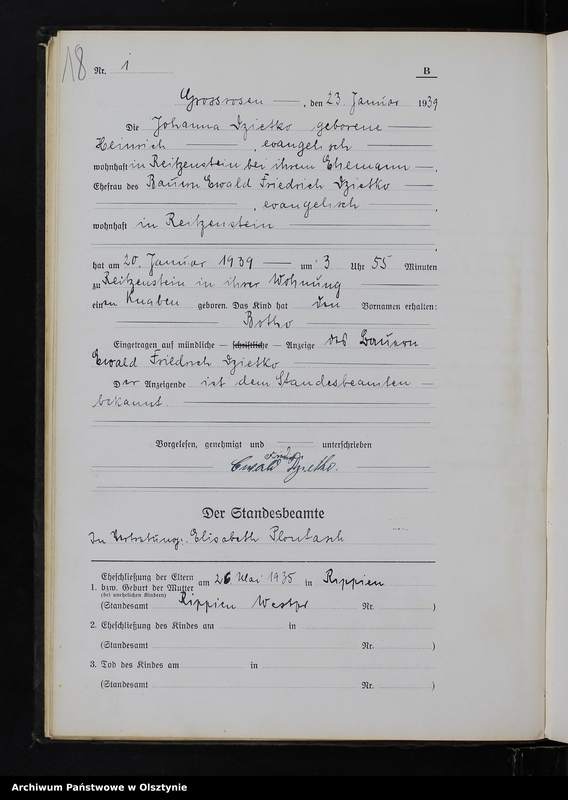 18
Nr. 1
B
Grossrosen, den 23. Januar 1939
Die Johanna Dzietko geborene
Heinrich, evangelisch
wohnhaft in Reitzenstein bei ihrem Ehemann,
Ehefrau des Bauern Ewald Friedrich Dzietko
, evangelisch,
wohnhaft in Reitzenstein
,
hat am 20. Januar 1939 um 3 Uhr 55 Minuten
zu Reitzenstein in ihrer Wohnung
einen Knaben geboren. Das Kind hat den Vornamen erhalten:
Botho
Eingetragen auf mündliche – schriftliche – Anzeige des Bauern
Ewald Friedrich Dzietko
Der Anzeigende ist dem Standesbeamten
bekannt.
Vorgelesen, genehmigt und unterschrieben
Ewald Friedrich Dzietko.
Der Standesbeamte
In Vertretung: Elisabeth
Eheschließung der Eltern
1. bzw. Geburt der Mutter am 26 Mai 1935 in Rippien
(bei unehelichen Kindern)
(Standesamt Rippien Westpr Nr. )
2. Eheschließung des Kindes am in
(Standesamt Nr. )
3. Tod des Kindes am in
(Standesamt Nr. )
Archiwum Państwowe w Olsztynie